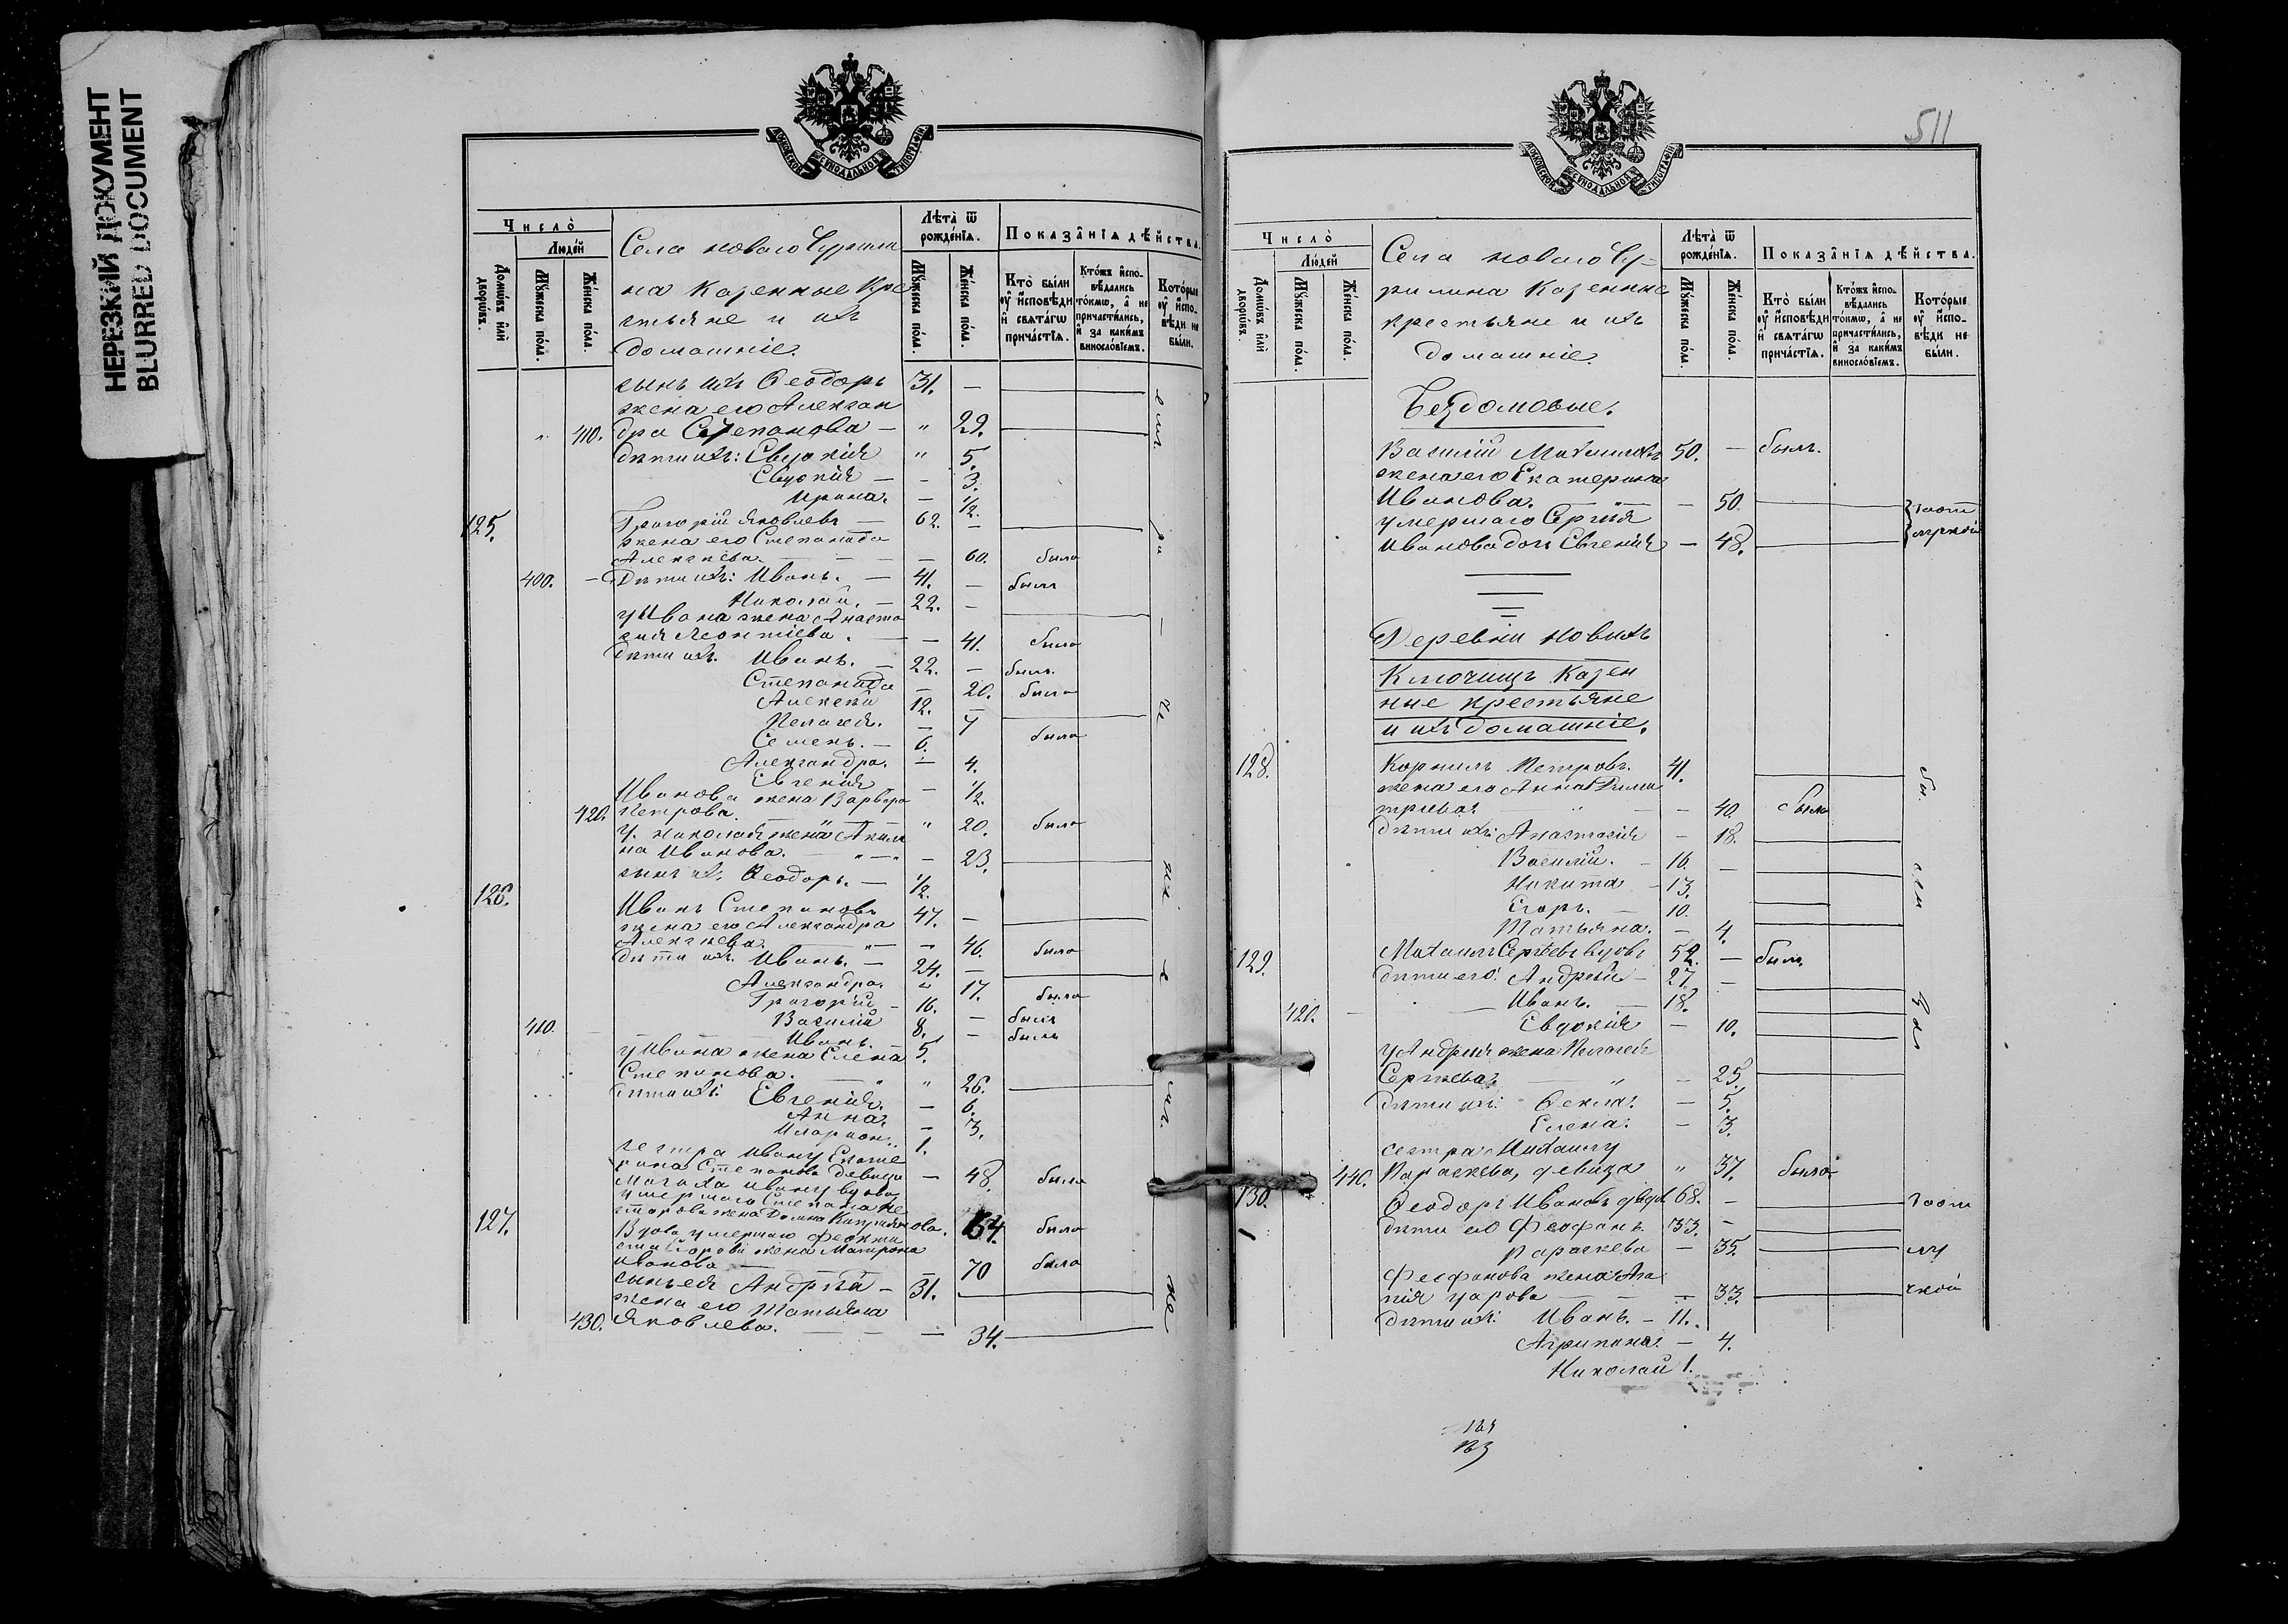 НЕРЕЗКИЙ ДОКУМЕНТ
BLURRED DOCUMENT
МОСКОВСКОЙ СѴНОДАЛЬНОЙ ТИПОГРАФІИ
Число̀
Люде́й
Домѡ́въ и҆лѝ дворѡ́въ.
Мꙋ́жеска по́ла.
Же́нска по́ла.
Села новаго Чурили
на казенные кре
стьяне и ихъ
домашніе.
Лѣта̀ ѿ рожде́нїѧ.
Мꙋ́жеска по́ла.
Же́нска по́ла.
Показа̑нїѧ дѣ́йства.
Кто̀ бы́ли ᲂу҆ и҆сповѣ́ди и҆ свѧта́гѡ прича́стїѧ.
Кто́жъ и҆споВѣ́дались то́кмѡ, а҆ не причасти́лись, и҆ за каки́мъ винослѡ́вїемъ.
Кото́рые ᲂу҆ и҆сповѣ́ди не бы́ли.
сынъ ихъ Ѳеодоръ 31. —
жена его Алексан
410. дра Степанова — " 29.
дѣти ихъ: Евдокія " 5.
Евдокія — - 3.
Ирина. — 1/2.
125. Григорій Яковлевъ — 62. —
жена его Степанида
Алексѣева. — — — 60. была
400. — Дѣти ихъ: Иванъ. — 41. — былъ
Николай. — 22. —
у Ивана жена Анаста
сия Леонтіева. — — 41. была
Дѣти ихъ. Иванъ. — 22. — былъ.
Степанида — 20. была
Алексѣй 12. —
Пелагея. — 7
Семенъ. — 6. была
Александра. — 4.
Евгенія — 1/2.
Иванова жена Варвара
420. Петрова. — " 20. была
у Николая жена Акили
на Иванова. — " — " — 23.
сынъ их. Ѳеодоръ. — 1/2.
126. Иванъ Степановъ 47. —
жена его Александра
Алексѣева. — " — — 46. была
дѣти ихъ. Иванъ. — 24. —
Александра. " 17. была
Григорій — 16. — былъ
410. — Василій 8. — былъ
Иванъ. — 5.
у Ивана жена Елена
Степанова. — " " 26.
дѣти ихъ: Евгенія. — 6.
Анна. — 3.
Иларион. 1.
сестра Ивану Екате
рина Степанова девица — 48. была
Мачиха Ивану вдова
умершаго Степана Не
стерова жена Домна Киприянова. 64. была
127. Вдова умершаго Феокти
ста жена Матрона
Иванова — — — 70 была
сынъ ея Андрей — 31.
жена его Татьяна
430. Яковлева. — — — 34.
511
МОСКОВСКОЙ СѴНОДАЛЬНОЙ ТИПОГРАФІИ
Число̀
Люде́й
Домѡ́въ и҆лѝ дворѡ́въ.
Мꙋ́жеска по́ла.
Же́нска по́ла.
Села новаго Чу=
рилина казенные
крестьяне и ихъ
домашніе.
Лѣта̀ ѿ рожде́нїѧ.
Мꙋ́жеска по́ла.
Же́нска по́ла.
Показа̑нїѧ дѣ́йства.
Кто̀ бы́ли ᲂу҆ и҆сповѣ́ди и҆ свѧта́гѡ прича́стїѧ.
Кто́жъ и҆споВѣ́дались то́кмѡ, а҆ не причасти́лись, и҆ за каки́мъ винослѡ́вїемъ.
Кото́рые ᲂу҆ и҆сповѣ́ди не бы́ли.
Бездомовые.
Василій Михаиловъ 50. — былъ.
жена его Екатерина
Иванова. — " — 50.
умершаго Сергѣя
Иванова дочь Евгенія — 48.
Деревни новыхъ
Ключищъ казен
ные крестьяне
и ихъ домашніе.
128. Корнилъ Петровъ. 41.
жена его Анна Дими
тріева. " — 40. была
дѣти ихъ: Анастасія — 18.
Василій. — 16. —
Никита — 13.
Егоръ. — 10.
Татьяна. — 4.
129. Михаилъ Сергѣевъ вдовъ 52. — былъ.
дѣти его: Андрей — 27. —
420. — Иванъ. — 18.
Евдокія — 10.
у Андрея жена Пелагея
Сергѣева — " — 25.
дѣти ихъ: Ѳекла. — 5.
Елена. — 3.
сестра Михаилу
440. Параскева, девица " 37. была
130. Ѳеодоръ Ивановъ вдов 68. —
дѣти его Феофанъ. 33. —
Параскева — 35.
Феофанова жена Ага
пія — — — 33.
дѣти ихъ: Иванъ. — 11.
Агрипина. — 4.
Николай 1.